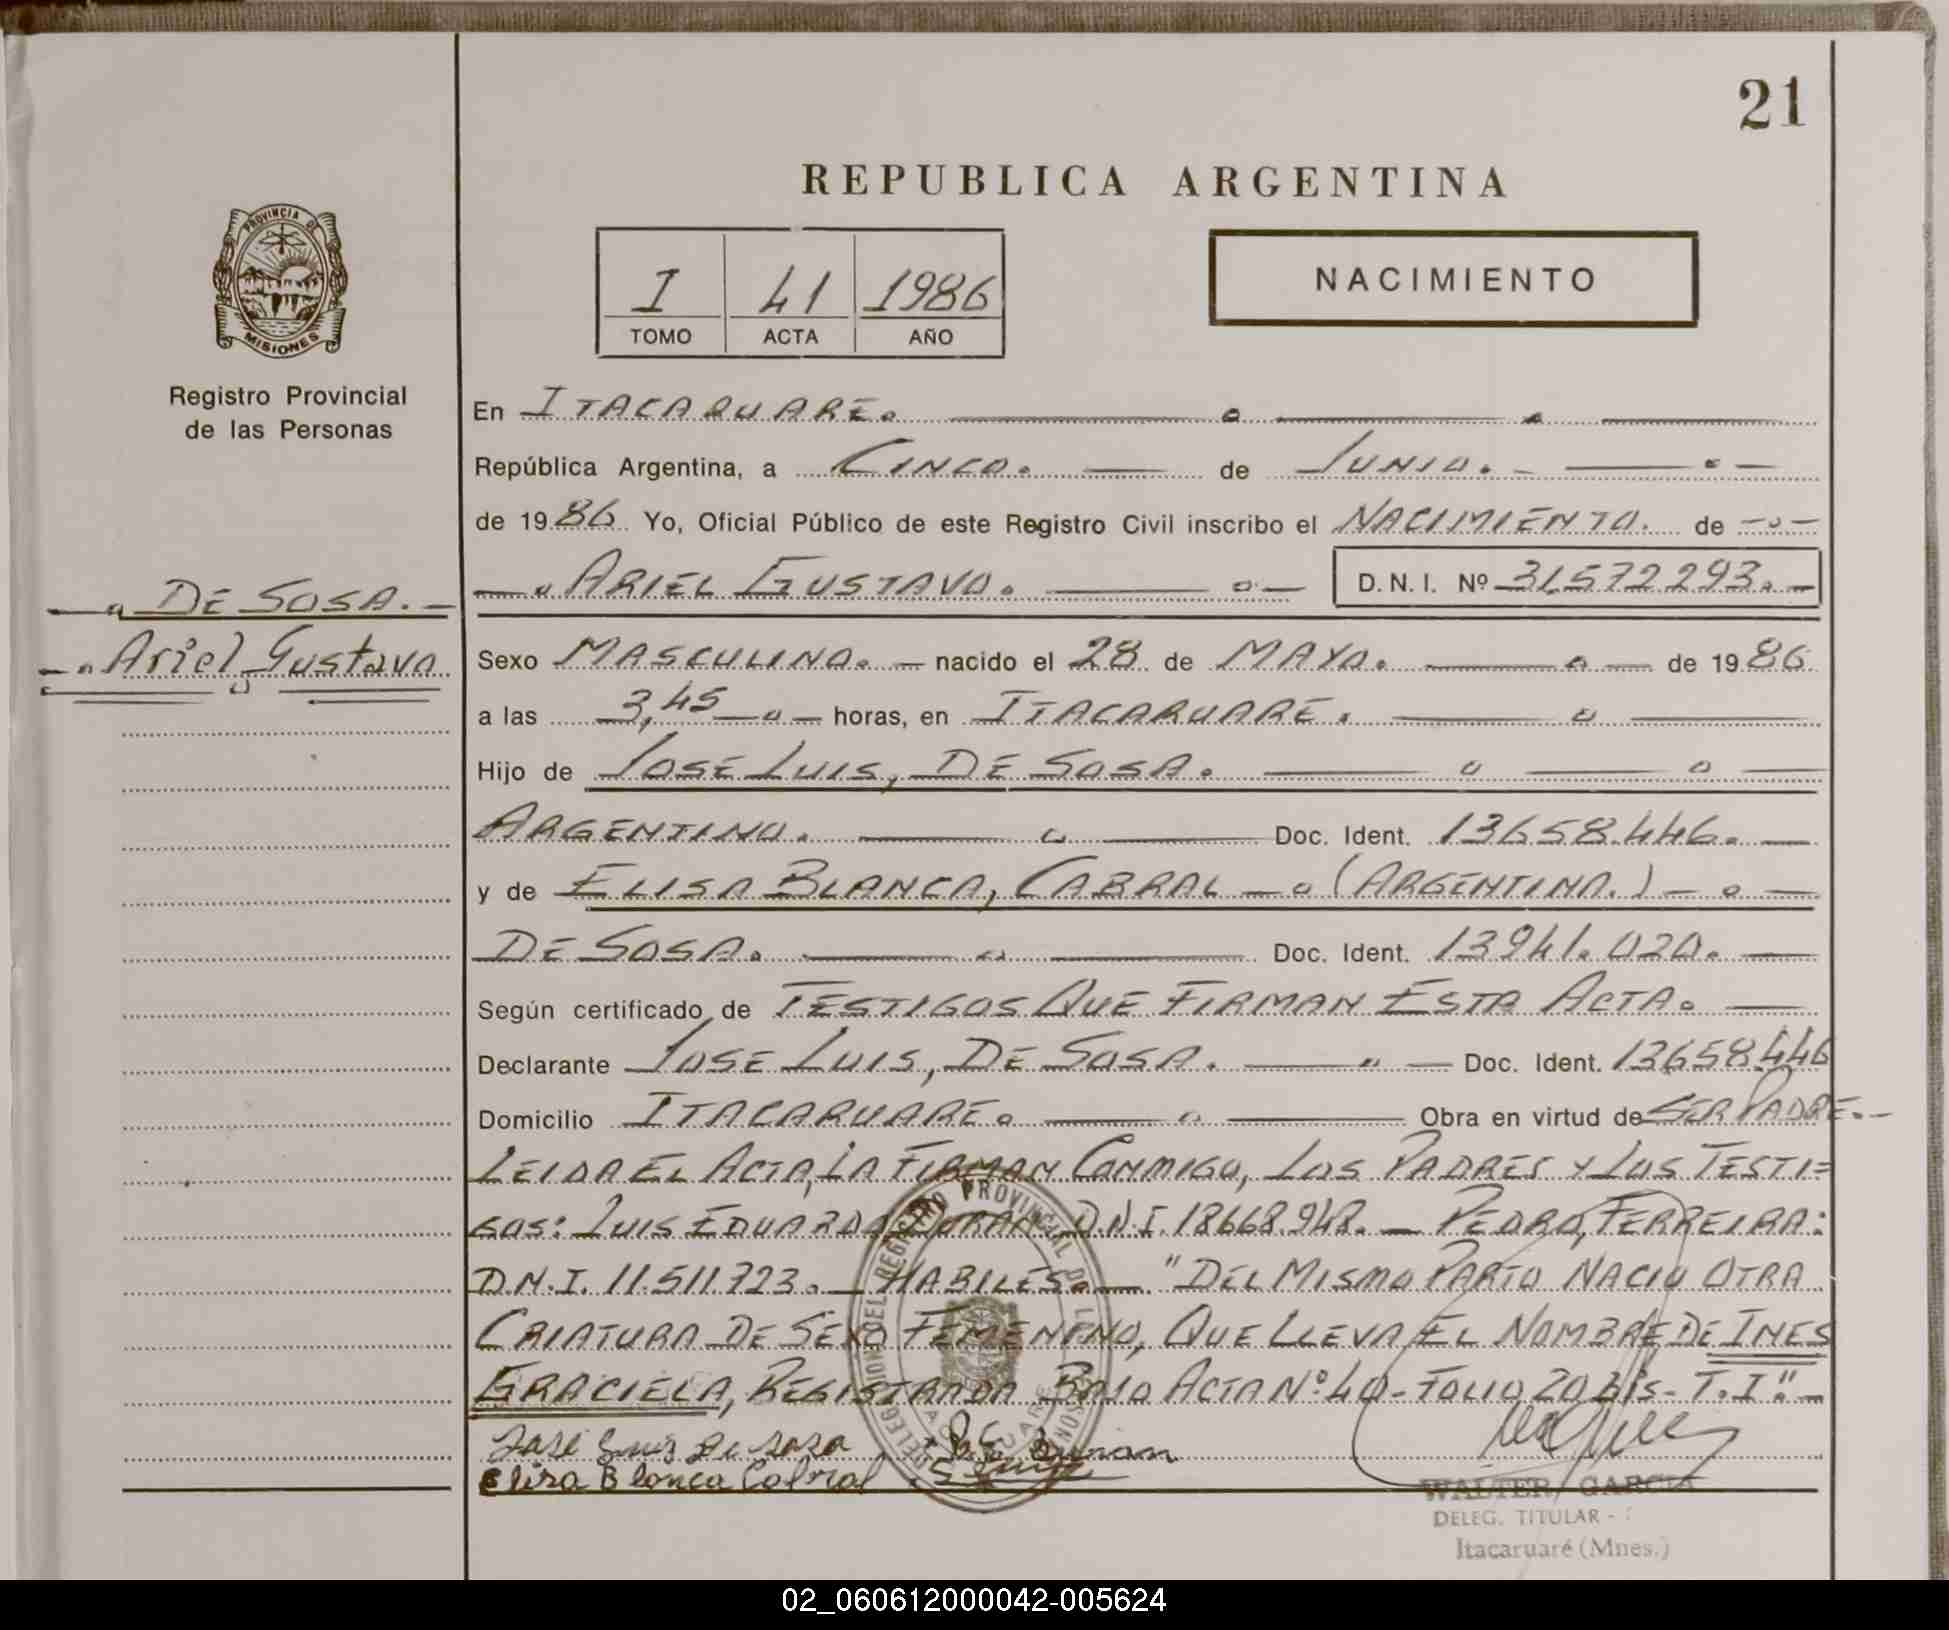 21
REPUBLICA ARGENTINA
PROVINCIA DE
MISIONES
Registro Provincial
de las Personas
I 41 1986
TOMO ACTA AÑO
NACIMIENTO
En ITACARUARE.
República Argentina, a CINCO. de JUNIO.
de 1986 Yo, Oficial Público de este Registro Civil inscribo el NACIMIENTO. de
ARIEL GUSTAVO. D.N.I. Nº 31.572293.
DE SOSA.
Ariel Gustavo
Sexo MASCULINO. nacido el 28 de MAYO. de 1986
a las 3,45 horas, en ITACARUARE.
Hijo de JOSE LUIS, DE SOSA.
ARGENTINO. Doc. Ident. 13658.446.
y de ELISA BLANCA, CABRAL (ARGENTINA.)
DE SOSA. Doc. Ident. 13941.020.
Según certificado de TESTIGOS QUE FIRMAN ESTA ACTA.
Declarante JOSE LUIS, DE SOSA. Doc. Ident. 13658.446
Domicilio ITACARUARE. Obra en virtud de SER PADRE.
LEIDA EL ACTA, LA FIRMAN CONMIGO, LOS PADRES Y LOS TESTI=
GOS: LUIS EDUARDO DURAN D.N.I. 18668.948. — PEDRO, FERREIRA:
D.N.I. 11.511.723. — HABILES. — "DEL MISMO PARTO NACIO OTRA
CRIATURA DE SEXO FEMENINO, QUE LLEVA EL NOMBRE DE INES
GRACIELA, REGISTRADA BAJO ACTA Nº 40 - FOLIO 20 BIS - T. I". -
José Luiz De Sosa Duran
Elisa Blanca Cabral
DELEGACION DEL REGISTRO PROVINCIAL DE LAS PERSONAS
WALTER GARCIA
DELEG. TITULAR -
Itacaruaré (Mnes.)
02_060612000042-005624